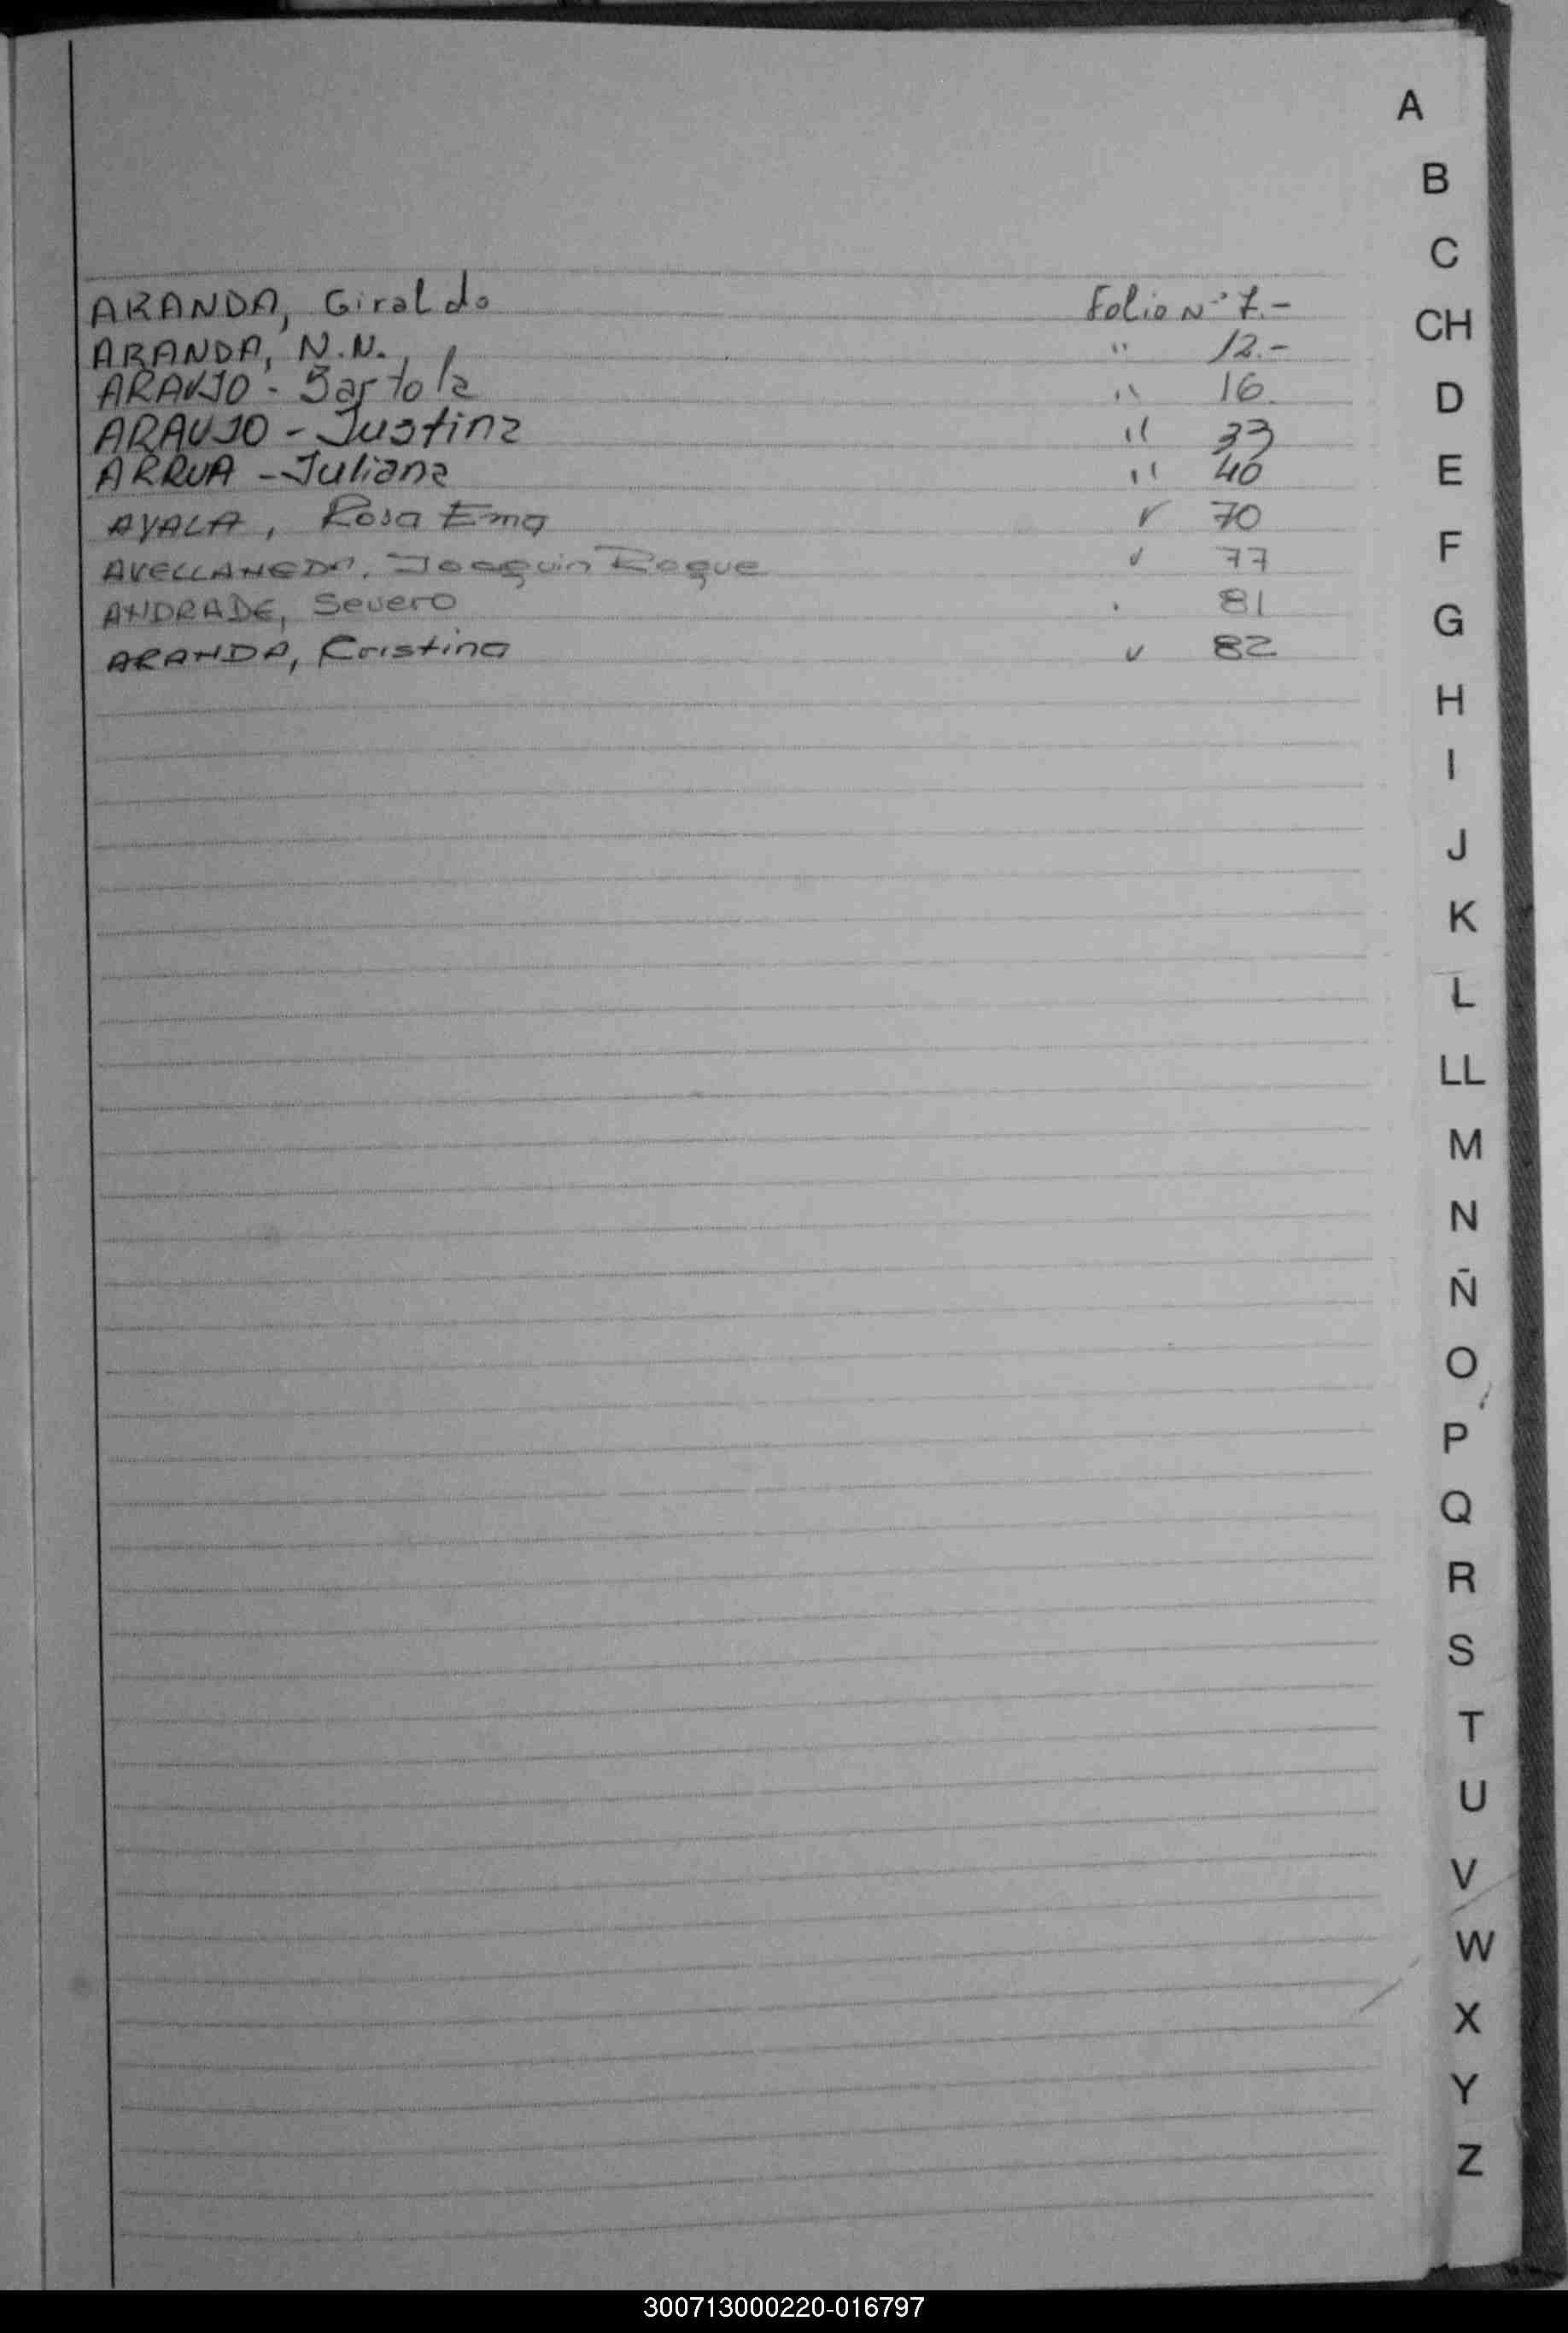 ARANDA, Giraldo Folio Nº 7.-
ARANDA, N.N. " 12.-
ARAUJO - Bartola " 16.
ARAUJO - Justina " 33
ARRUA - Juliana " 40
AYALA, Rosa Ema " 70
AVELLANEDA, Joaquin Roque " 77
ANDRADE, Severo " 81
ARANDA, Cristina " 82
A
B
C
CH
D
E
F
G
H
I
J
K
L
LL
M
N
Ñ
O
P
Q
R
S
T
U
V
W
X
Y
Z
300713000220-016797